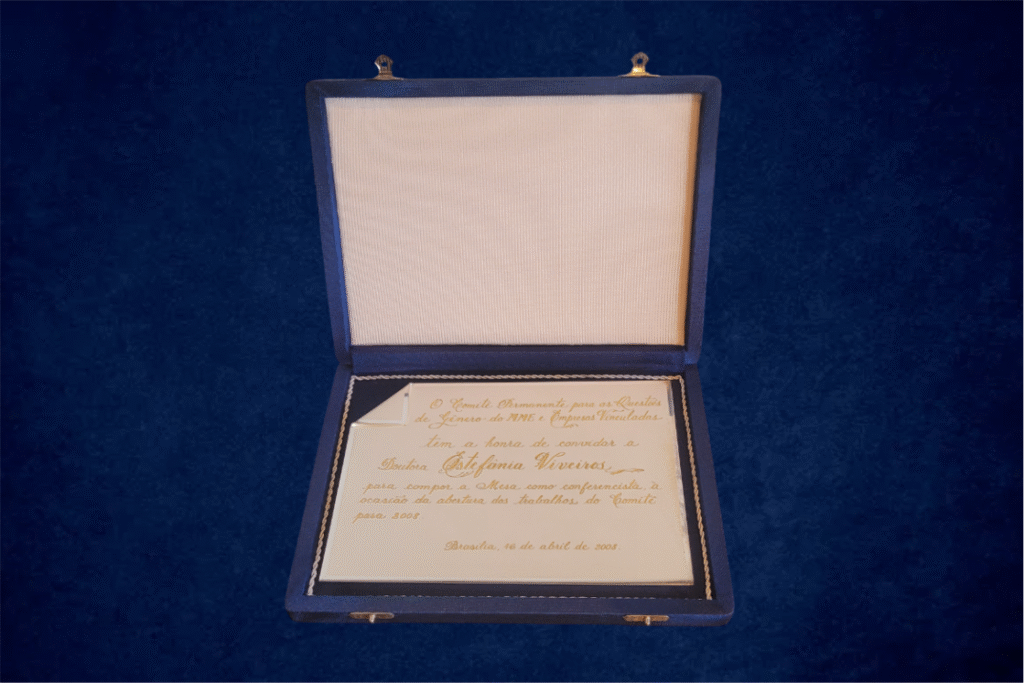 O Comitê Permanente para as Questões
de Gênero do MME e Empresas Vinculadas
tem a honra de convidar a
Doutora Estefânia Viveiros,
para compor a Mesa como conferencista, à
ocasião da abertura dos trabalhos do Comitê
para 2008
Brasília, 16 de abril de 2008.